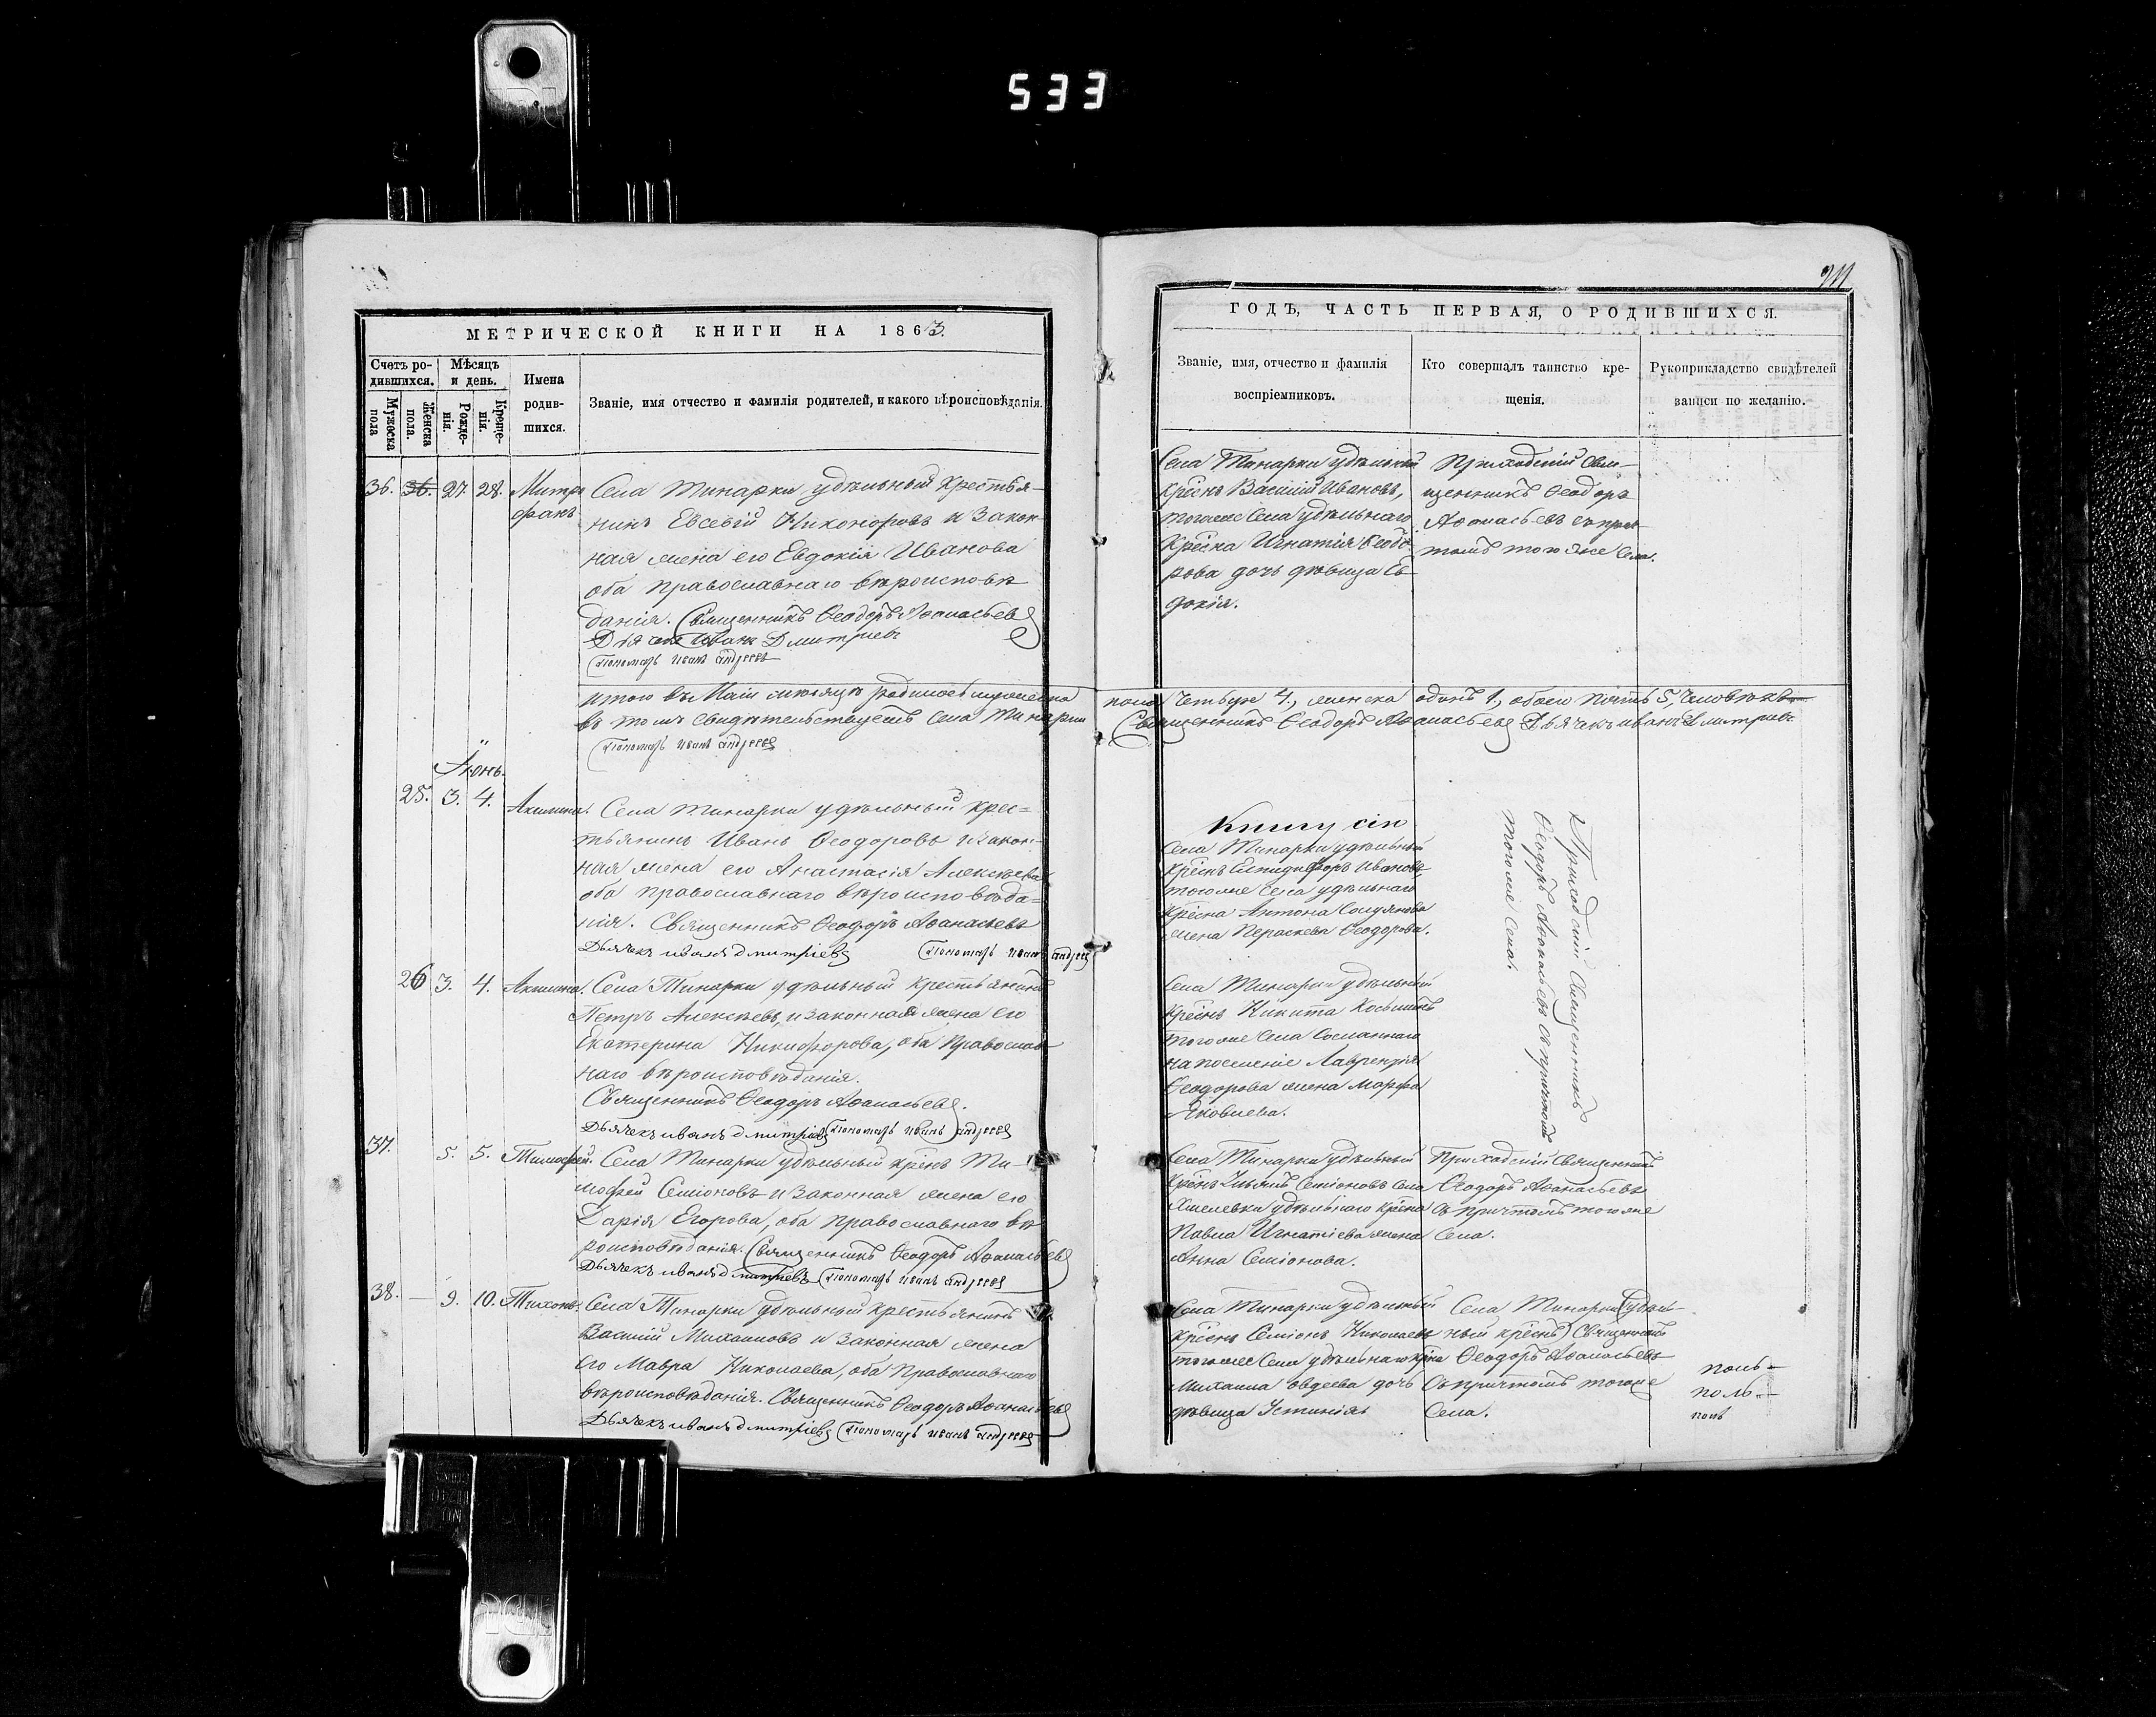 533
МЕТРИЧЕСКОЙ КНИГИ НА 1863.
Счетъ ро-
дившихся.
Мѣсяцъ
и день.
Мужеска
пола
Женска
пола.
Рожде-
нія.
Креще-
нія.
Имена
родив-
шихся.
Званіе, имя отчество и фамилія родителей, и какого вѣроисповѣданія.
36. 36. 27. 28. Митро
фанъ
Села Тинарки удѣльный крестья-
нинъ Евсевій Никоноровъ и закон-
ная жена его Евдокія Иванова
оба православнаго вѣроисповѣ
данія. Священникъ Ѳеодоръ Аѳанасьевъ
Дьячекъ Иванъ Дмитріевъ
Пономарь Иванъ Андреевъ
Итого въ Маіи мѣсяцѣ родилось мужеска
въ томъ свидѣтельствуетъ села Тинарки
Пономарь Иванъ Андреевъ
Іюнь.
25. 3. 4. Акилина.
Села Тинарки удѣльный крес-
тьянинъ Иванъ Ѳеодоровъ и закон-
ная жена его Анастасія Алексѣева
оба православнаго вѣроисповѣда-
нія. Священникъ Ѳеодоръ Аѳанасьевъ
Дьячекъ Иванъ Дмитріевъ Пономарь Иванъ Андреевъ
26 3. 4. Акилина.
Села Тинарки удѣльный крестьянинъ
Петръ Алексѣевъ, и законная жена его
Екатерина Никифорова, оба православ
наго вѣроисповѣданія.
Священникъ Ѳеодоръ Аѳанасьевъ.
Дьячекъ Иванъ Дмитріевъ Пономарь Иванъ Андреевъ
37. 5. 5. Тимоѳей.
Села Тинарки удѣльный крѣнъ Ти-
моѳей Семіоновъ и законная жена его
Дарія Егорова, оба православнаго вѣ
роисповѣданія. Священникъ Ѳеодоръ Аѳанасьевъ
Дьячекъ Иванъ Дмитріевъ Пономарь Иванъ Андреевъ
38. — 9. 10. Тихонъ.
Села Тинарки удѣльный крестьянинъ
Василій Михаиловъ и законная жена
его Мавра Николаева, оба православнаго
вѣроисповѣданія. Священникъ Ѳеодоръ Аѳанасьевъ
Дьячекъ Иванъ Дмитріевъ Пономарь Иванъ Андреевъ
ГОДЪ, ЧАСТЬ ПЕРВАЯ, О РОДИВШИХСЯ.
Званіе, имя, отчество и фамилія
воспріемниковъ.
Кто совершалъ таинство кре-
щенія.
Рукоприкладство свидѣтелей
записи по желанію.
Села Тинарки удѣльный
крѣснъ Василій Ивановъ,
тогоже села удѣльнаго
крѣсна Игнатія Ѳеодо
рова дочь дѣвица Ев
докія.
Приходскій свя-
щенникъ Ѳеодоръ
Аѳанасьевъ съ прич
томъ того же села.
пола четыре 4., женска одинъ 1., обоего пять 5, человѣкъ
Священникъ Ѳеодоръ Аѳанасьевъ Дьячекъ Иванъ Дмитріевъ
Книгу сію
Села Тинарки удѣльный
крѣснъ Ивановъ,
тогоже села удѣльнаго
крѣсна Антона
жена Параскева Ѳеодорова.
Приходскій Священникъ
Ѳеодоръ Аѳанасьевъ съ причтомъ
тогоже села.
Села Тинарки удѣльный
крѣснъ Никита Косьминъ
тогоже села сосланнаго
на поселеніе Лаврентія
Ѳеодорова жена Марфа
Яковлева.
Села Тинарки удѣльный
крѣнъ Семіоновъ села
удѣльнаго крѣсна
Павла Игнатіева жена
Анна Семіонова.
Приходскій Священникъ
Ѳеодоръ Аѳанасьевъ
съ причтомъ тогоже
села.
Села Тинарки удѣльный
крѣснъ Семіонъ Николаевъ
тогоже села удѣльнаго крѣна
Михаила Овдѣева дочь
дѣвица Устинія.
Села Тинарки (удѣль-
ный крѣснъ) Священникъ
Ѳеодоръ Аѳанасьевъ
съ причтомъ тогоже
села.